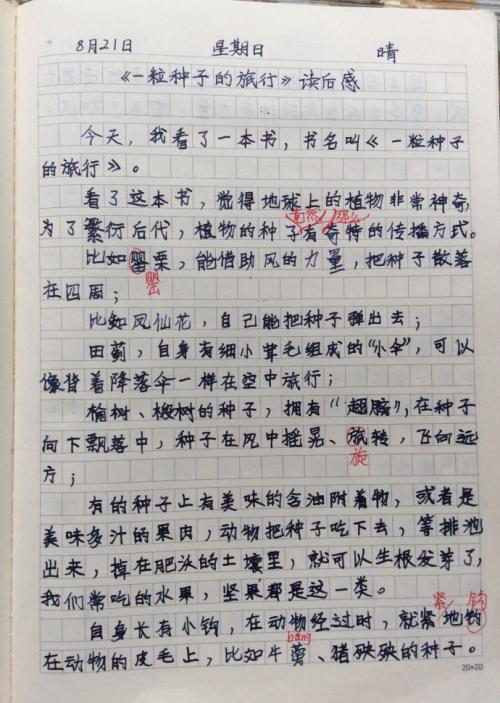 8月21日 星期日 晴
《一粒种子的旅行》读后感
今天，我看了一本书，书名叫《一粒种子
的旅行》。
看了这本书，觉得地球上的植物非常神奇，
竟然 那么
为了繁衍后代，植物的种子有奇特的传播方式。
比如罂粟，能借助风的力量，把种子散落
罂
在四周；
比如凤仙花，自己能把种子弹出去；
田蓟，自身有细小茸毛组成的“小伞”，可以
像背着降落伞一样在空中旅行；
榆树、椴树的种子，拥有“翅膀”，在种子
向下飘落中，种子在风中摇晃、旋转，飞向远
旋
方；
有的种子上有美味的含油附着物，或者是
美味多汁的果肉，动物把种子吃下去，等排泄
出来，掉在肥沃的土壤里，就可以生根发芽了，
我们常吃的水果，坚果都是这一类。
紧 钩
自身长有小钩，在动物经过时，就紧地钩
bàng
在动物的皮毛上，比如牛蒡、猪殃殃的种子。
20×20